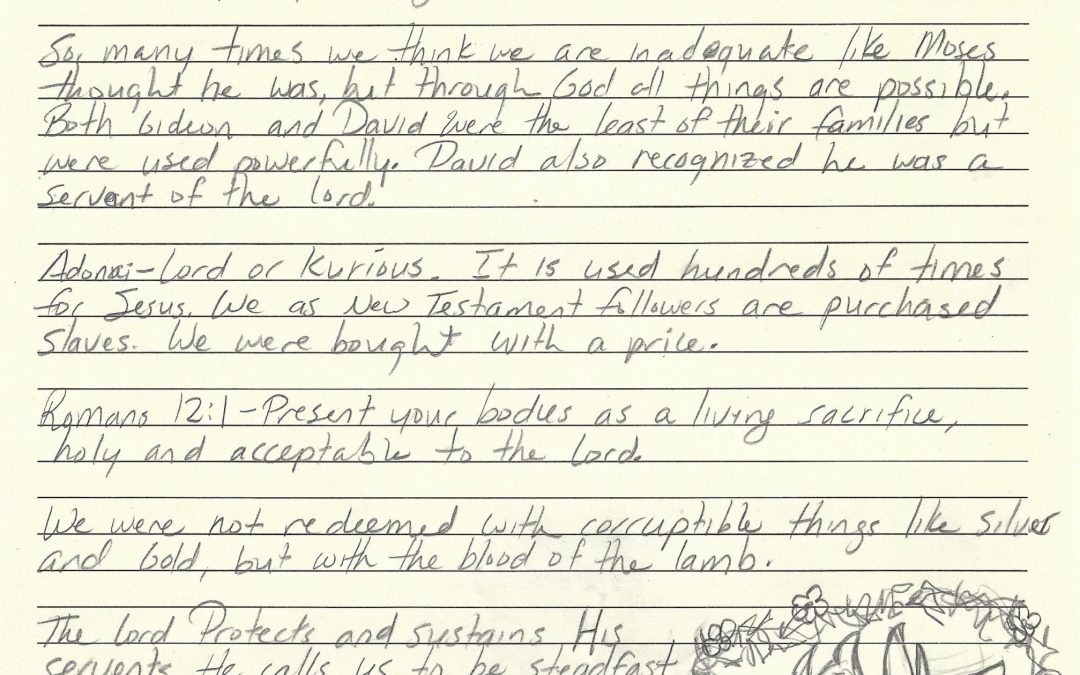 So, many times we think we are inadequate like Moses
thought he was, but through God all things are possible.
Both Gideon and David were the least of their families but
were used powerfully. David also recognized he was a
servant of the lord.
Adonai-Lord or Kurious. It is used hundreds of times
for Jesus. We as New Testament followers are purchased
slaves. We were bought with a price.
Romans 12:1-Present your bodies as a living sacrifice,
holy and acceptable to the Lord.
We were not redeemed with corruptible things like silver
and Gold, but with the blood of the lamb.
The Lord Protects and sustains His
servants. He calls us to be steadfast